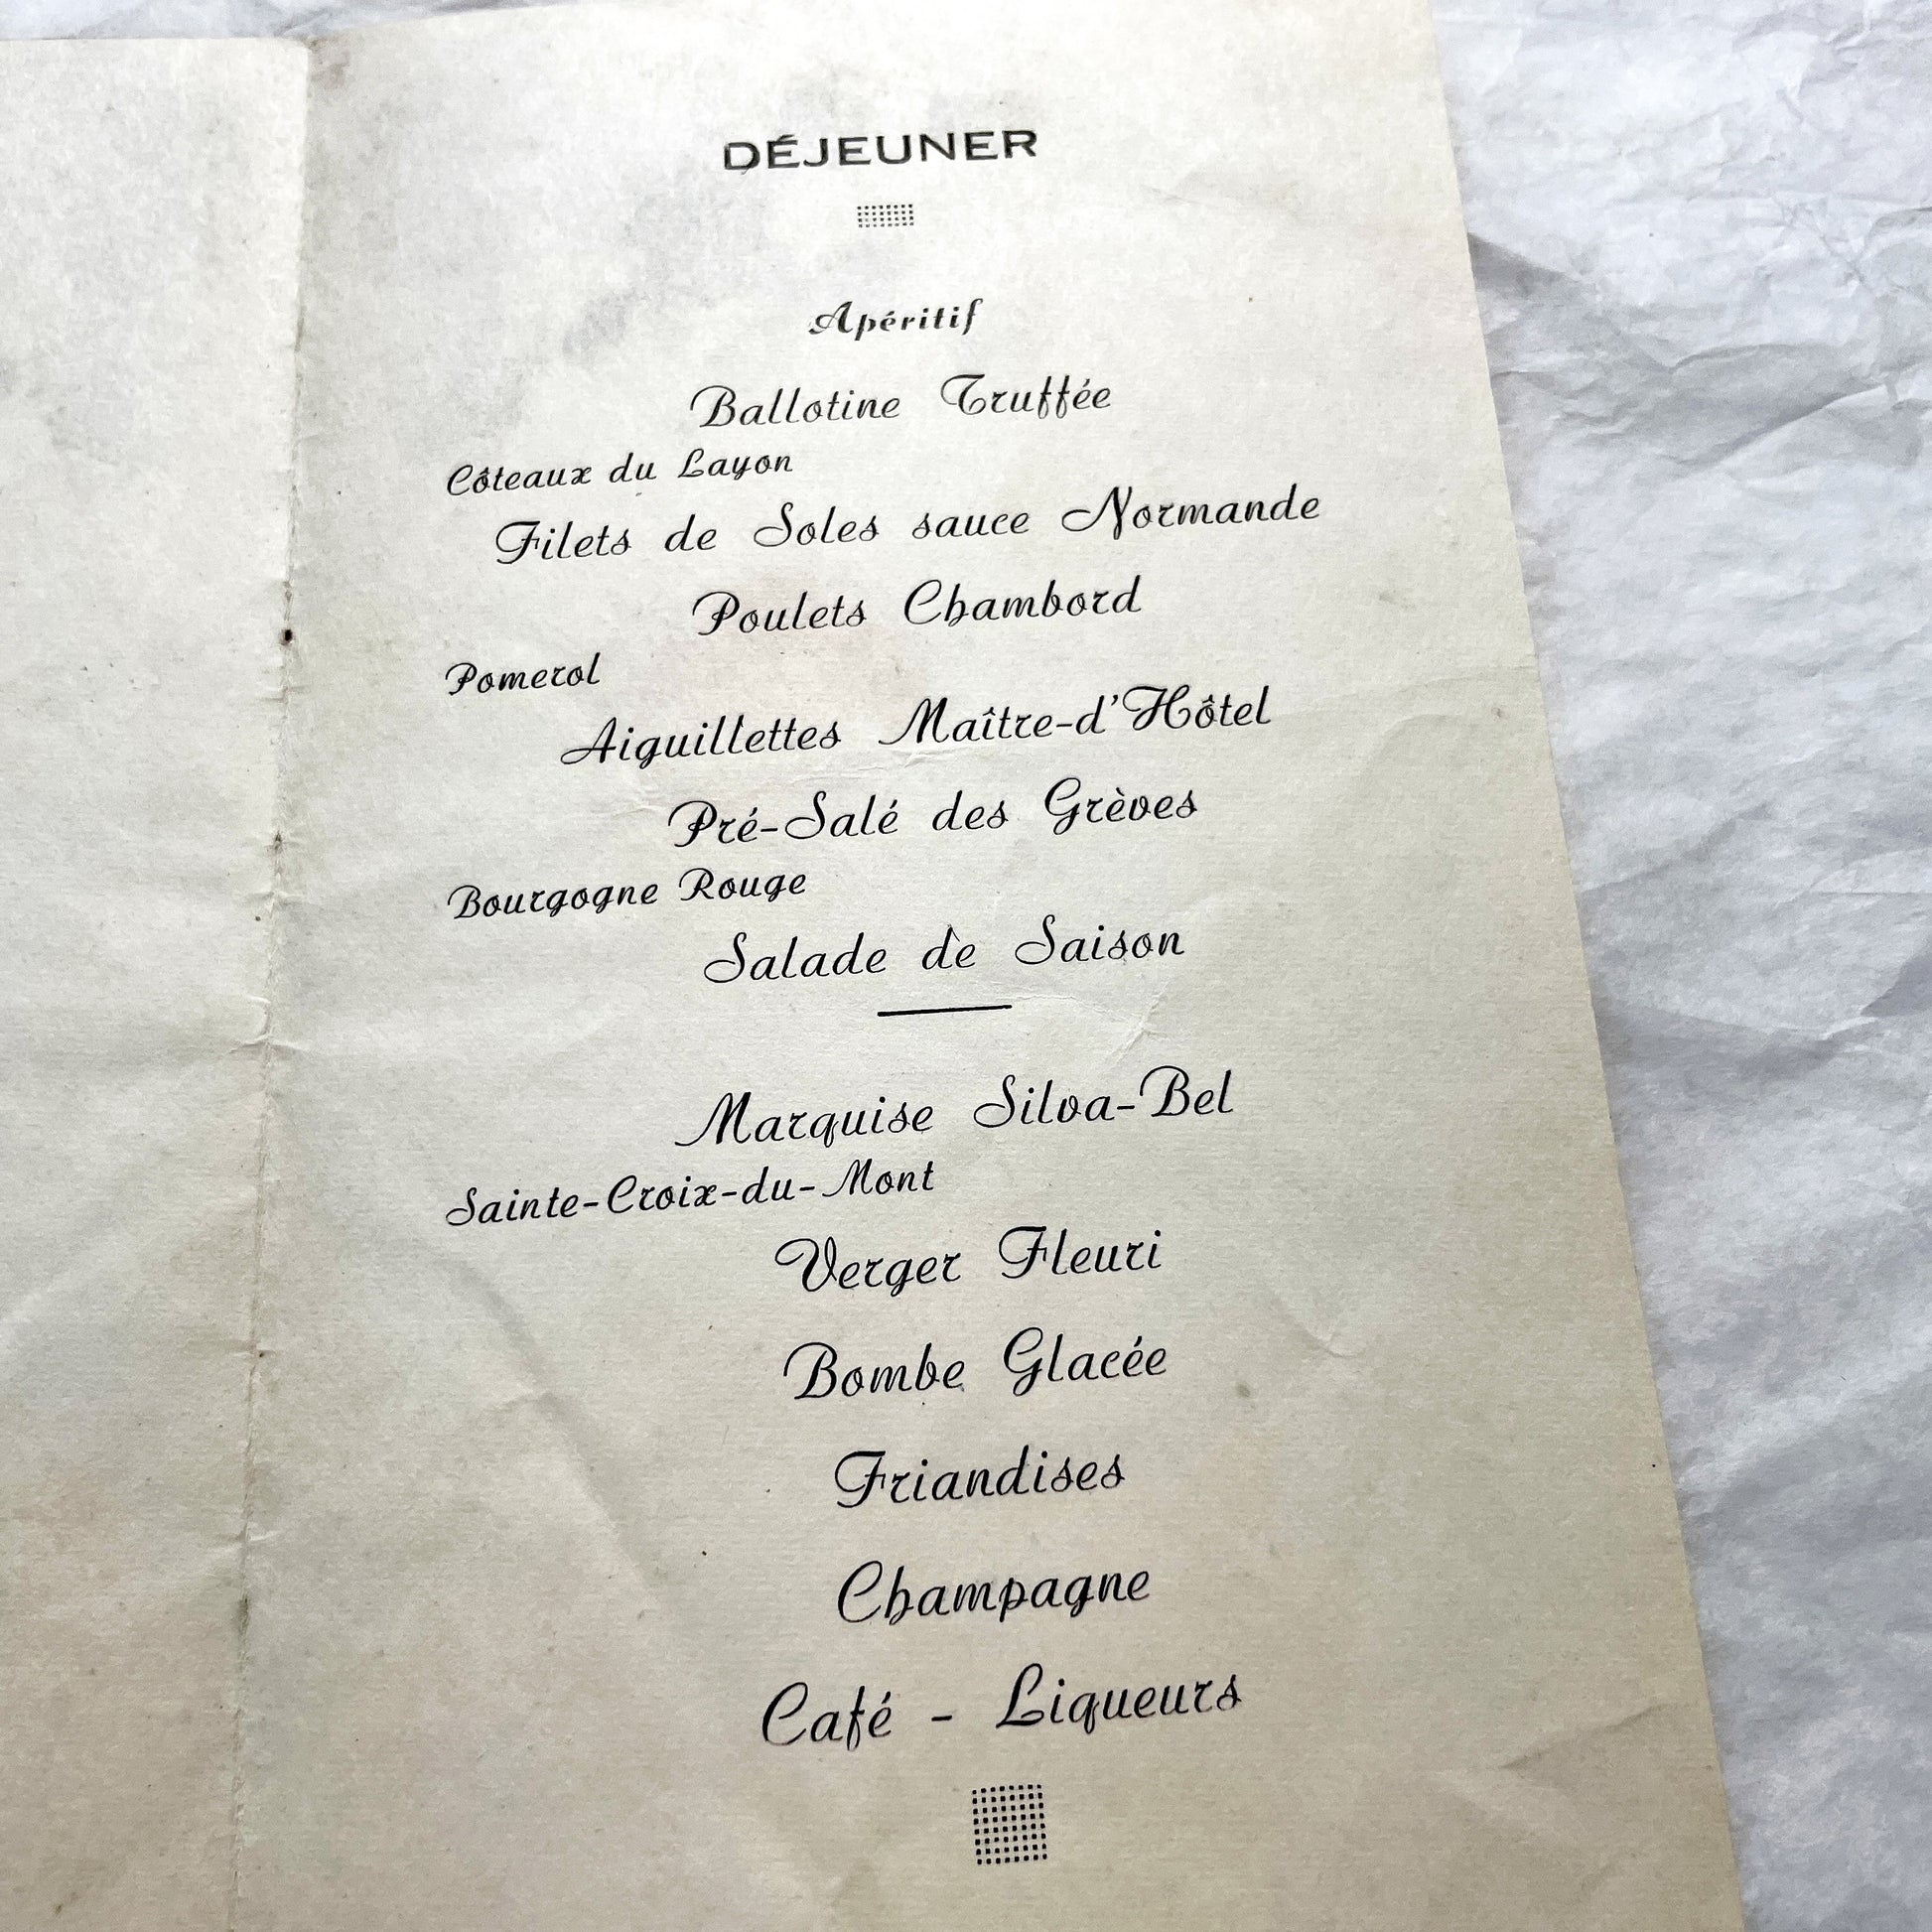 DÉJEUNER
Apéritif
Ballotine Truffée
Côteaux du Layon
Filets de Soles sauce Normande
Poulets Chambord
Pomerol
Aiguillettes Maître-d'Hôtel
Pré-Salé des Grèves
Bourgogne Rouge
Salade de Saison
Marquise Silva-Bel
Sainte-Croix-du-Mont
Verger Fleuri
Bombe Glacée
Friandises
Champagne
Café - Liqueurs